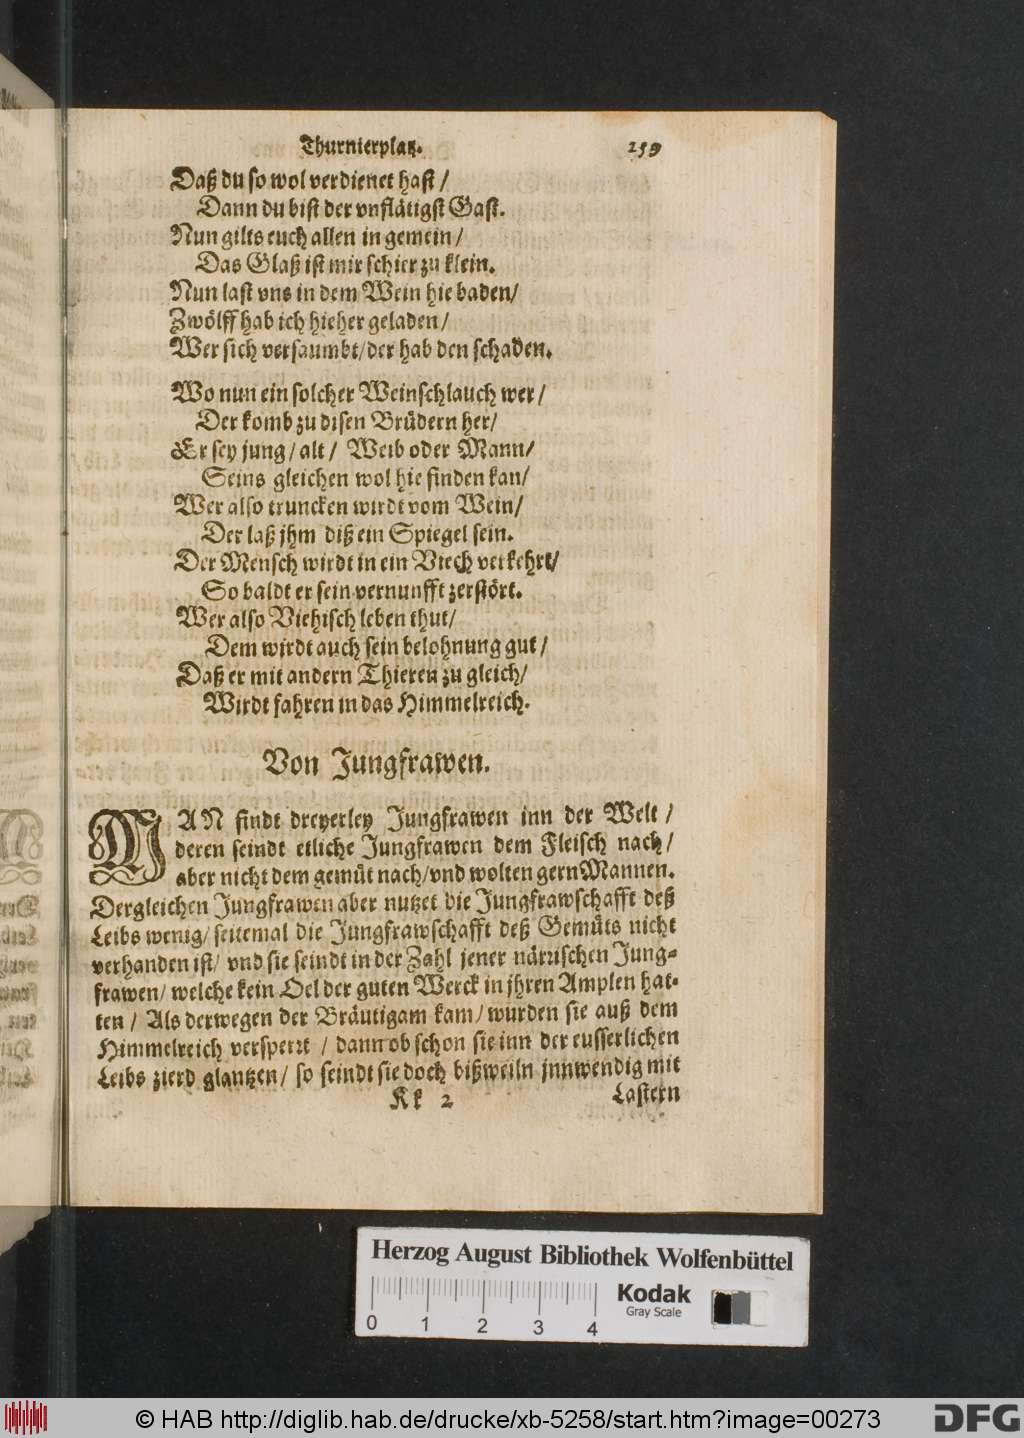 Thurnierplatz. 259
Daß du so wol verdienet hast /
Dann du bist der vnflätigst Gast.
Nun gilts euch allen in gemein /
Das Glaß ist mir schier zu klein.
Nun last vns in dem Wein hie baden/
Zwölff hab ich hieher geladen /
Wer sich versaumbt/der hab den schaden.
Wo nun ein solcher Weinschlauch wer /
Der komb zu disen Brüdern her/
Er sey jung / alt / Weib oder Mann/
Seins gleichen wol hie finden kan/
Wer also truncken wirdt vom Wein/
Der laß jhm diß ein Spiegel sein.
Der Mensch wirdt in ein Viech verkehrt/
So baldt er sein vernunfft zerstört.
Wer also Viehisch leben thut/
Dem wirdt auch sein belohnung gut /
Daß er mit andern Thieren zu gleich/
Wirdt fahren in das Himmelreich.
Von Jungfrawen.
MAN findt dreyerley Jungfrawen inn der Welt /
deren seindt etliche Jungfrawen dem Fleisch nach/
aber nicht dem gemüt nach/vnd wolten gern Mannen.
Dergleichen Jungfrawen aber nutzet die Jungfrawschafft deß
Leibs wenig/ seitemal die Jungfrawschafft deß Gemüts nicht
verhanden ist/ vnd sie seindt in der Zahl jener närrischen Jung-
frawen/ welche kein Oel der guten Werck in jhren Amplen hat-
ten / Als derwegen der Bräutigam kam/ wurden sie auß dem
Himmelreich versperrt / dann ob schon sie inn der eusserlichen
Leibs zierd glantzen/ so seindt sie doch bißweiln jnnwendig mit
Kk 2 Lastern
Herzog August Bibliothek Wolfenbüttel
Kodak
Gray Scale
0 1 2 3 4
© HAB http://diglib.hab.de/drucke/xb-5258/start.htm?image=00273
DFG